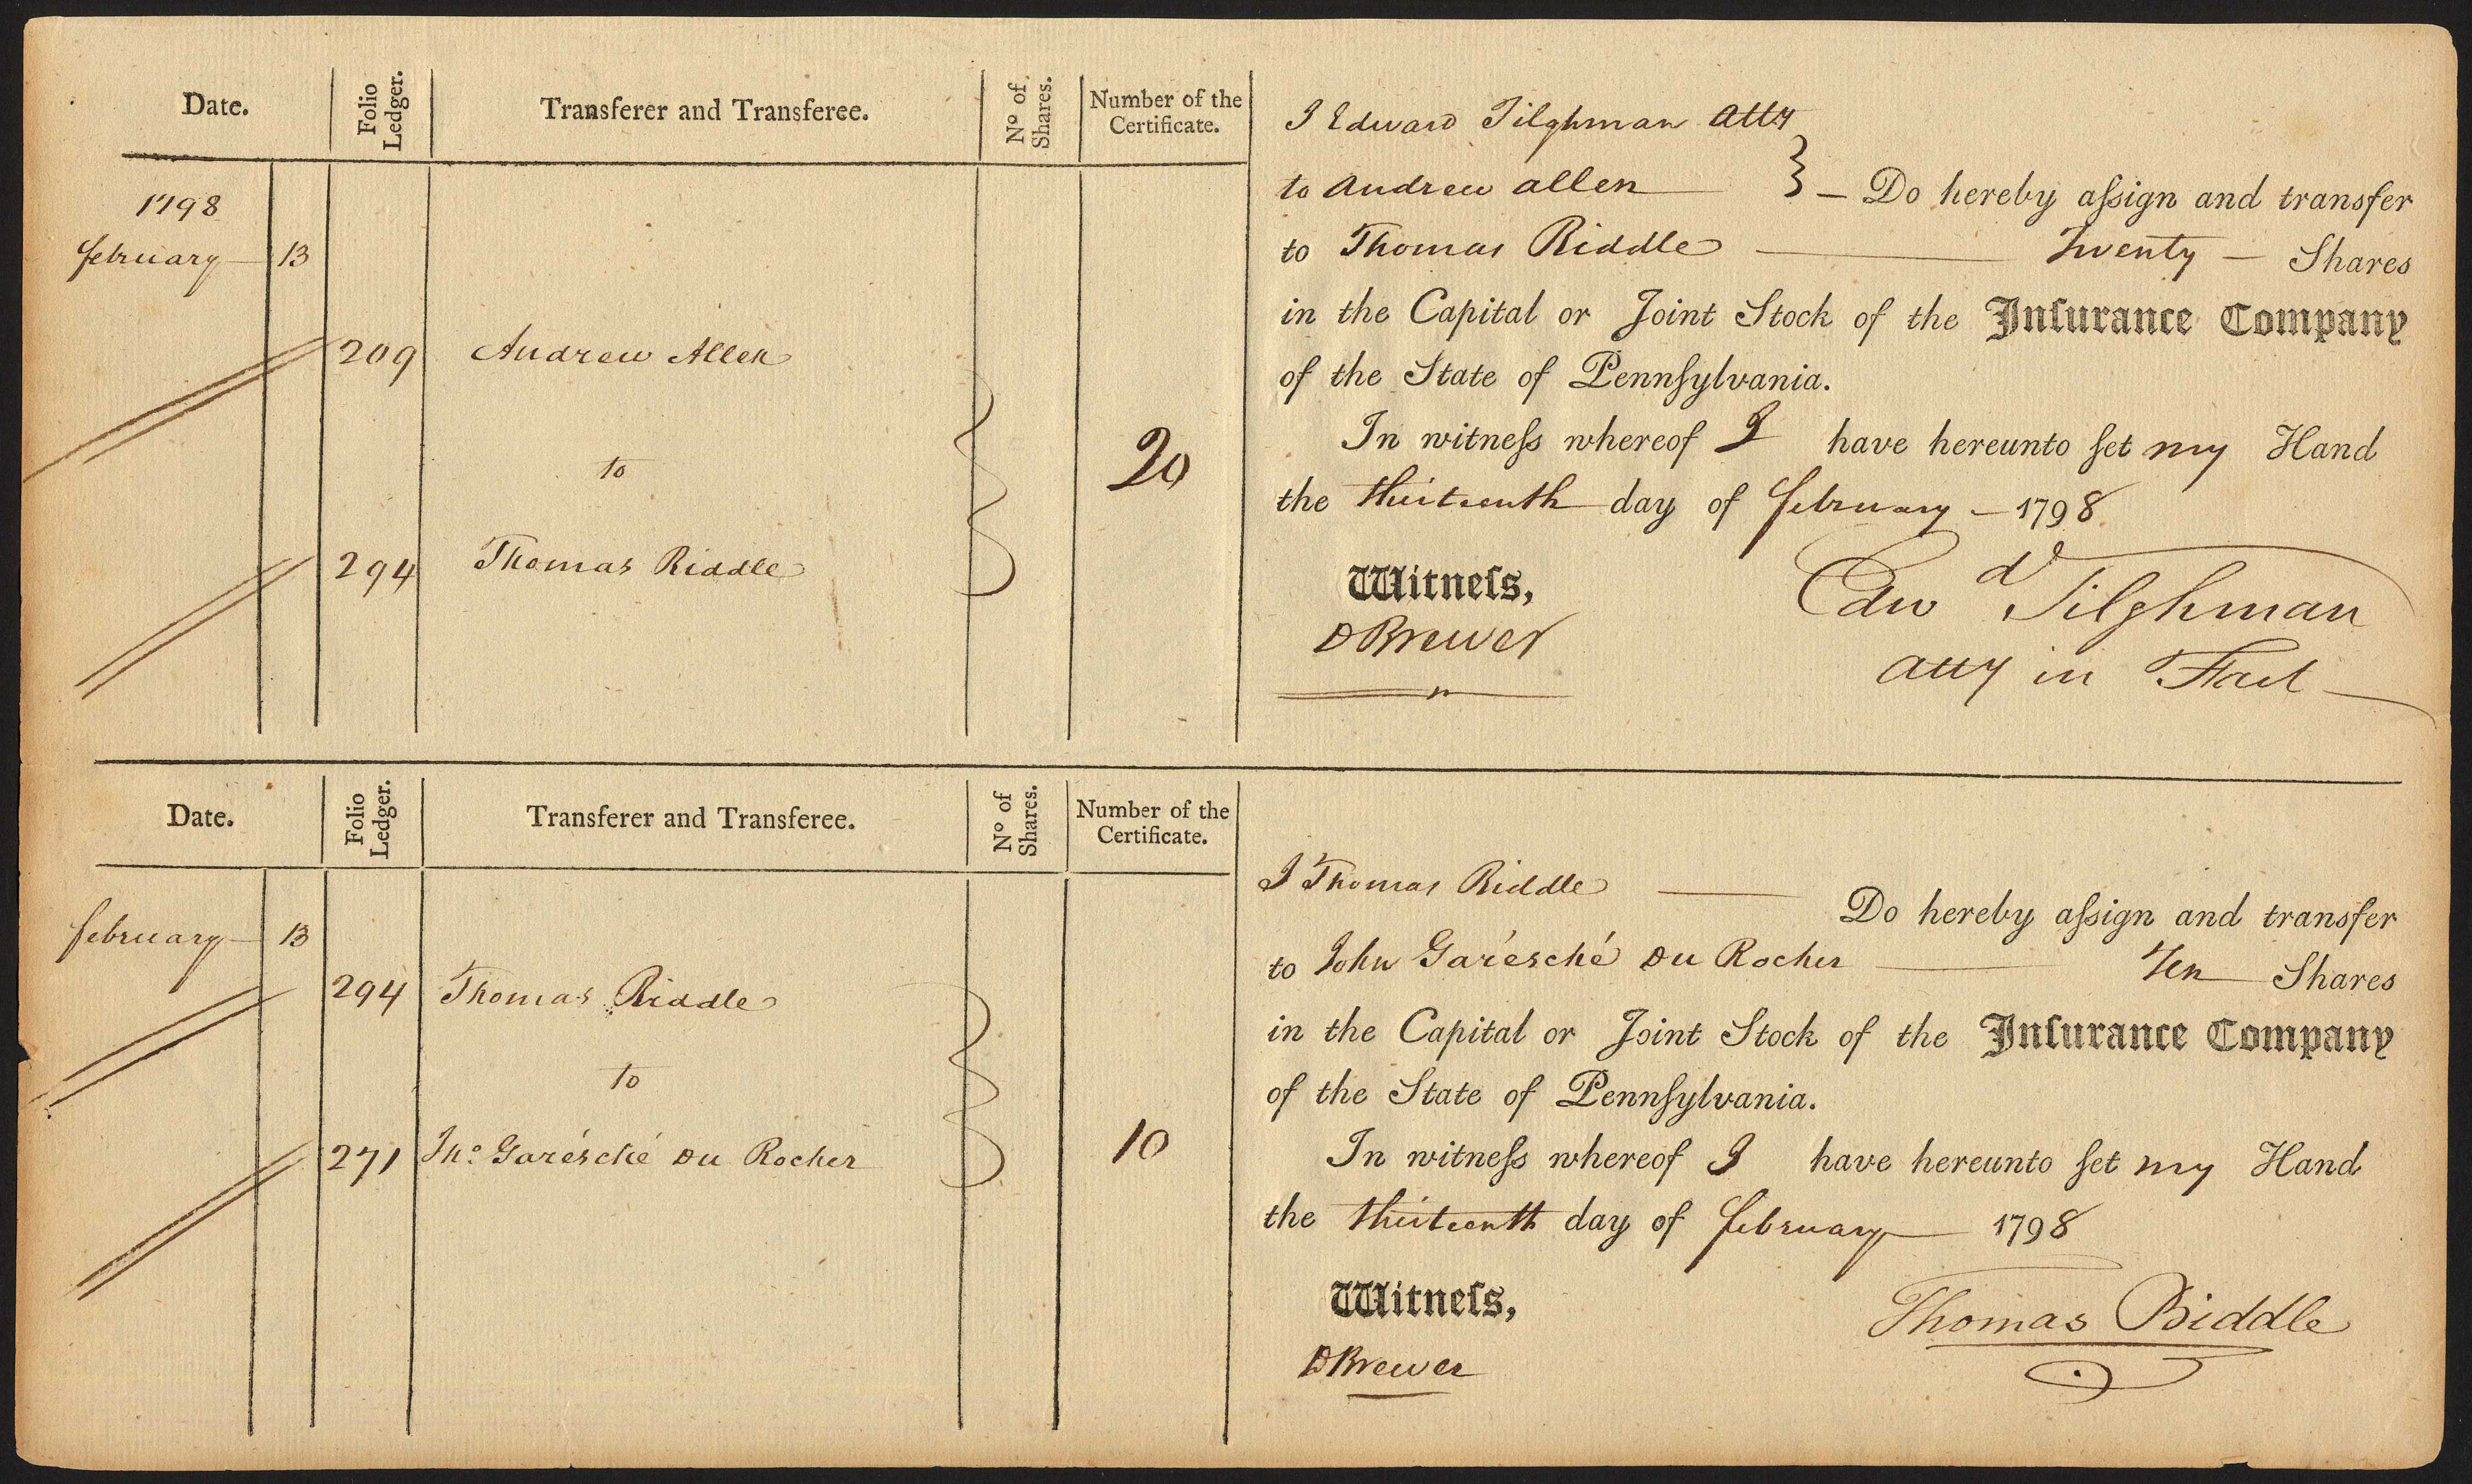 Date.
Folio Ledger.
Transferer and Transferee.
Nº of Shares.
Number of the Certificate.
1798
february 13
209 Andrew Allen
to
294 Thomas Biddle
20
I Edward Tilghman Atty
to Andrew Allen } — Do hereby aſsign and transfer
to Thomas Biddle — Twenty — Shares
in the Capital or Joint Stock of the Inſurance Company
of the State of Pennſylvania.
In witneſs whereof I have hereunto ſet my Hand
the thirteenth day of february — 1798
Witneſs,
D Brewer
Edwd Tilghman
Atty in Fact
Date.
Folio Ledger.
Transferer and Transferee.
Nº of Shares.
Number of the Certificate.
february 13
294 Thomas Biddle
to
271 Jnº Garésché Du Rocher
10
I Thomas Biddle — Do hereby aſsign and transfer
to John Garésché Du Rocher — Ten Shares
in the Capital or Joint Stock of the Inſurance Company
of the State of Pennſylvania.
In witneſs whereof I have hereunto ſet my Hand
the thirteenth day of february — 1798
Witneſs,
D Brewer
Thomas Biddle